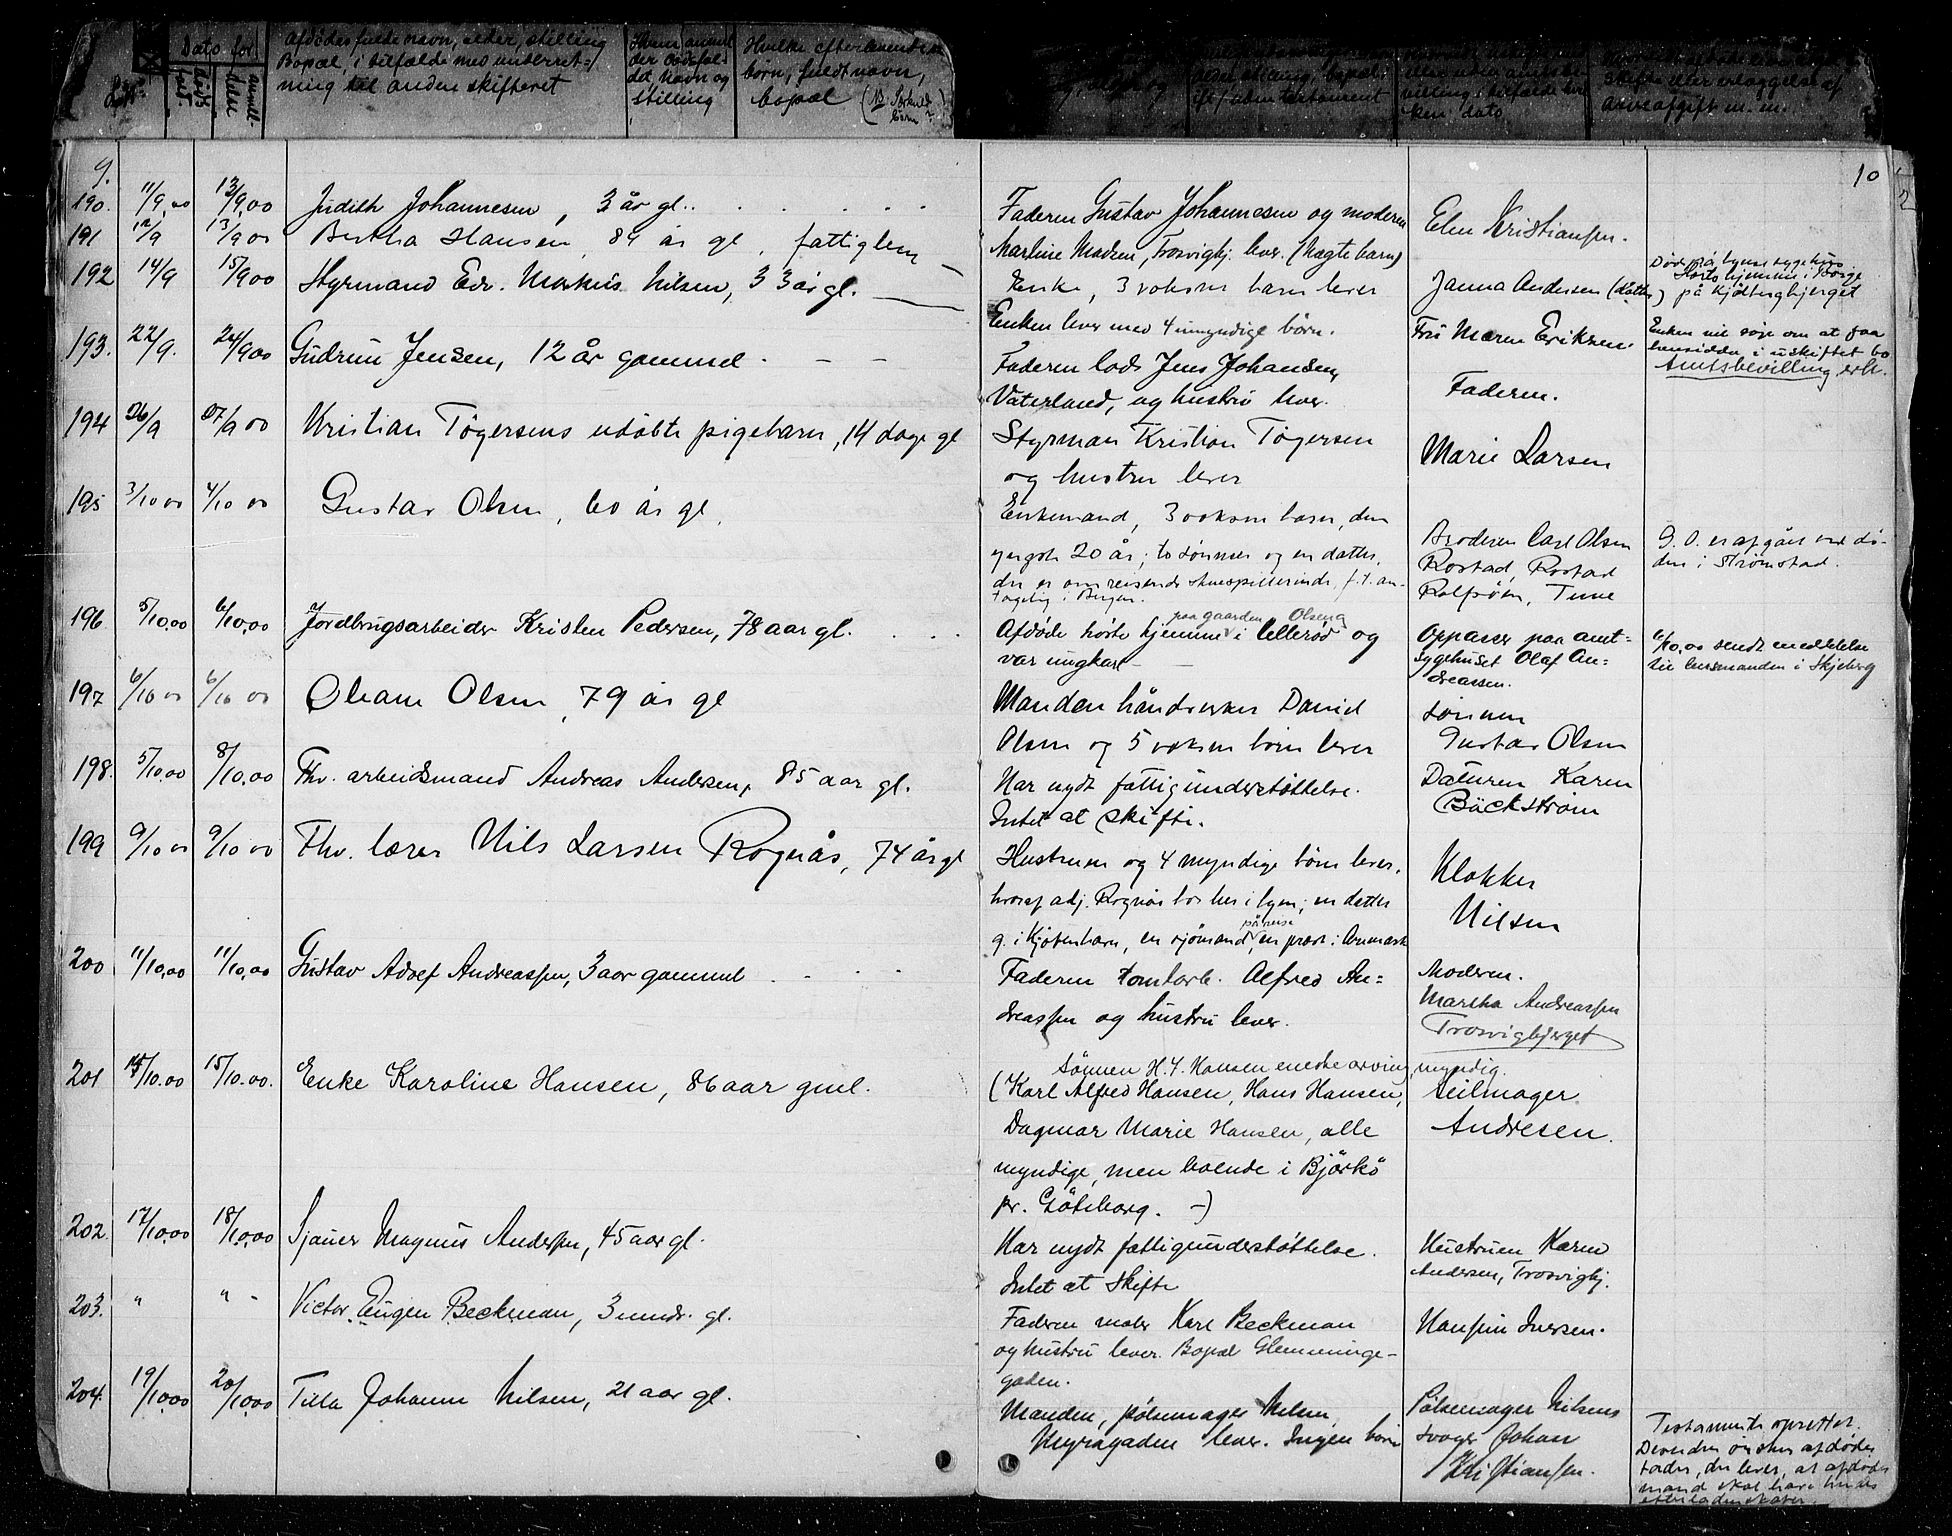 Dato for
afdødes fulde navn, alder, stilling
Bopæl, i tilfælde med underret-
ning til anden skifteret
det navn og
stilling
Hvilke efterlevende
børn, fuldt navn,
bopæl
skifte eller erlæggelse af
arveafgift m. m.
9. 10
190. 11/9.00 13/9.00 Judith Johannesen, 3 år gl.
Faderen Gustav Johannesen og moderen
Marline Madsen, Trosvigbj. lever. (Uægte barn)
Elen Kristiansen.
191 12/9 13/9 00 Bertha Hansen, 89 år gl, fattiglem
Enke, 3 voksne barn lever
Janna Andersen (datter)
på Kjölbergbjerget
192 14/9 15/9 00 Styrmand Edv. Markus Nilsen, 33 år gl.
Enken lever med 4 umyndige börn.
Fru Maren Eriksen.
Enken vil søge om at faa
hensidde i uskiftet bo
Amtsbevilling erh.
193. 22/9. 24/9 00 Gudrun Jensen, 12 år gammel
Faderen lods Jens Johansen,
Vaterland, og hustru lever.
Faderen.
194 26/9 27/9 00 Kristian Tögersens udöbte pigebarn, 14 dage gl
Styrman Kristian Tögersen
og hustru lever
Marie Larsen
195 3/10 00 4/10 00 Gustav Olsen, 60 år gl.
Enkemand, 3 voksne barn, den
yngste 20 år; to sønner og en datter,
der er omreisende skuespillerinde, f. t. an-
tagelig i Bergen.
Broderen Carl Olsen
Rostad, Rostad
Rolfsöen, Tune
G. O. er afgået ved dö-
den i Strömstad.
196 5/10.00 6/10.00 Jordbrugsarbeider Kristen Pedersen, 78 aar gl.
paa gaarden Olseng
Afdöde hörte hjemme i Ullerød og
var ungkarl
Oppasser paa amt=
sygehuset Olaf An=
dreassen.
6/10.00 sendt meddelelse
til lensmanden i Skjeberg
197 6/10 00 6/10 00 Oleane Olsen, 79 år gl
Manden håndverker David
Olsen og 5 voksne börn lever
sönnen
Gustav Olsen
198. 5/10.00 8/10.00 Fhv. arbeidsmand Andreas Andersen, 85 aar gl.
Har nydt fattigunderstöttelse.
Intet at skifte.
Datteren Karen
Bäckström
199 9/10 00 9/10 00 Fhv. lærer Nils Larsen Rognås, 74 år gl
Hustruen og 4 myndige börn lever,
hvoraf adj. Rognås bor her i byen; en datter
på reise
g. i Kjöbenhavn, en sjömand, en præst i Danmark
Klokker
Nilsen
200 11/10.00 11/10.00 Gustav Adolf Andreassen, 3 aar gammel
Faderen tomtarb. Alfred An=
dreassen og hustru lever.
Moderen.
Martha Andreassen
Trosvigbjerget
201 14/10.00 15/10.00. Enke Karoline Hansen, 86 aar gml.
Sönnen H. J. Hansen eneste arving, myndig.
(Karl Alfred Hansen, Hans Hansen,
Dagmar Marie Hansen, alle
myndige, men boende i Björkö
pr. Göteborg. -)
Seilmager
Andresen.
202. 17/10.00 18/10.00 Sjauer Magnus Andersen, 45 aar gl.
Har nydt fattigunderstöttelse.
Intet at skifte
Hustruen Karen
Andersen, Trosvigbj.
203. " " - Victor Eugen Beckman, 3 mndr. gl.
Faderen maler Karl Beckman
og hustru lever. Bopæl Glemminge-
gaden.
Hansine Iversen.
204. 19/10.00 20/10.00 Tilla Johanne Nilsen, 21 aar gl.
Manden, pölsemager Nilsen,
Nygagaden lever. Ingen börn
Pölsemager Nilsens
svoger Johan
Kristiansen.
Testamente oprettet.
Desuden önsker afdödes
fader, der lever, at afdödes
mand skal have hendes
efterladenskaber.